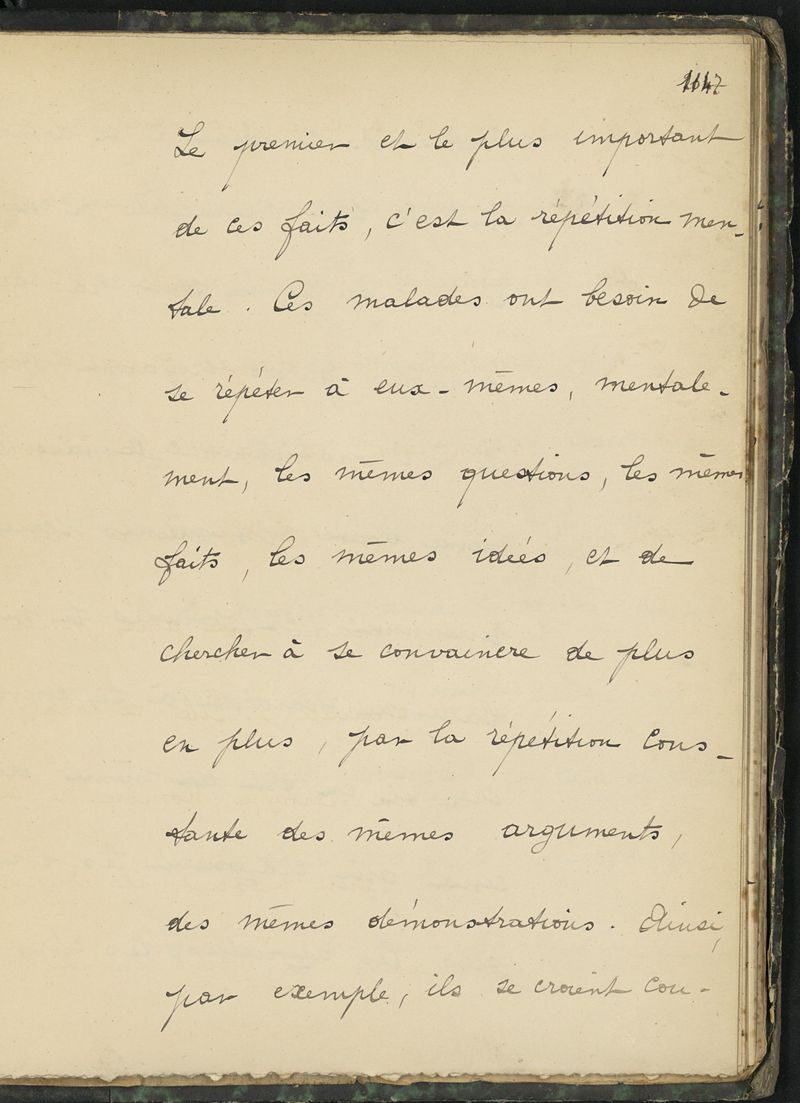 Le premier et le plus important
de ces faits, c'est la répétition men-
tale. Ces malades ont besoin de
se répéter à eux-mêmes, mentale-
ment, les mêmes questions, les mêmes
faits, les mêmes idées, et de
chercher à se convaincre de plus
en plus, par la répétition cons-
tante des mêmes arguments,
des mêmes démonstrations. Ainsi,
par exemple, ils se croient cou-